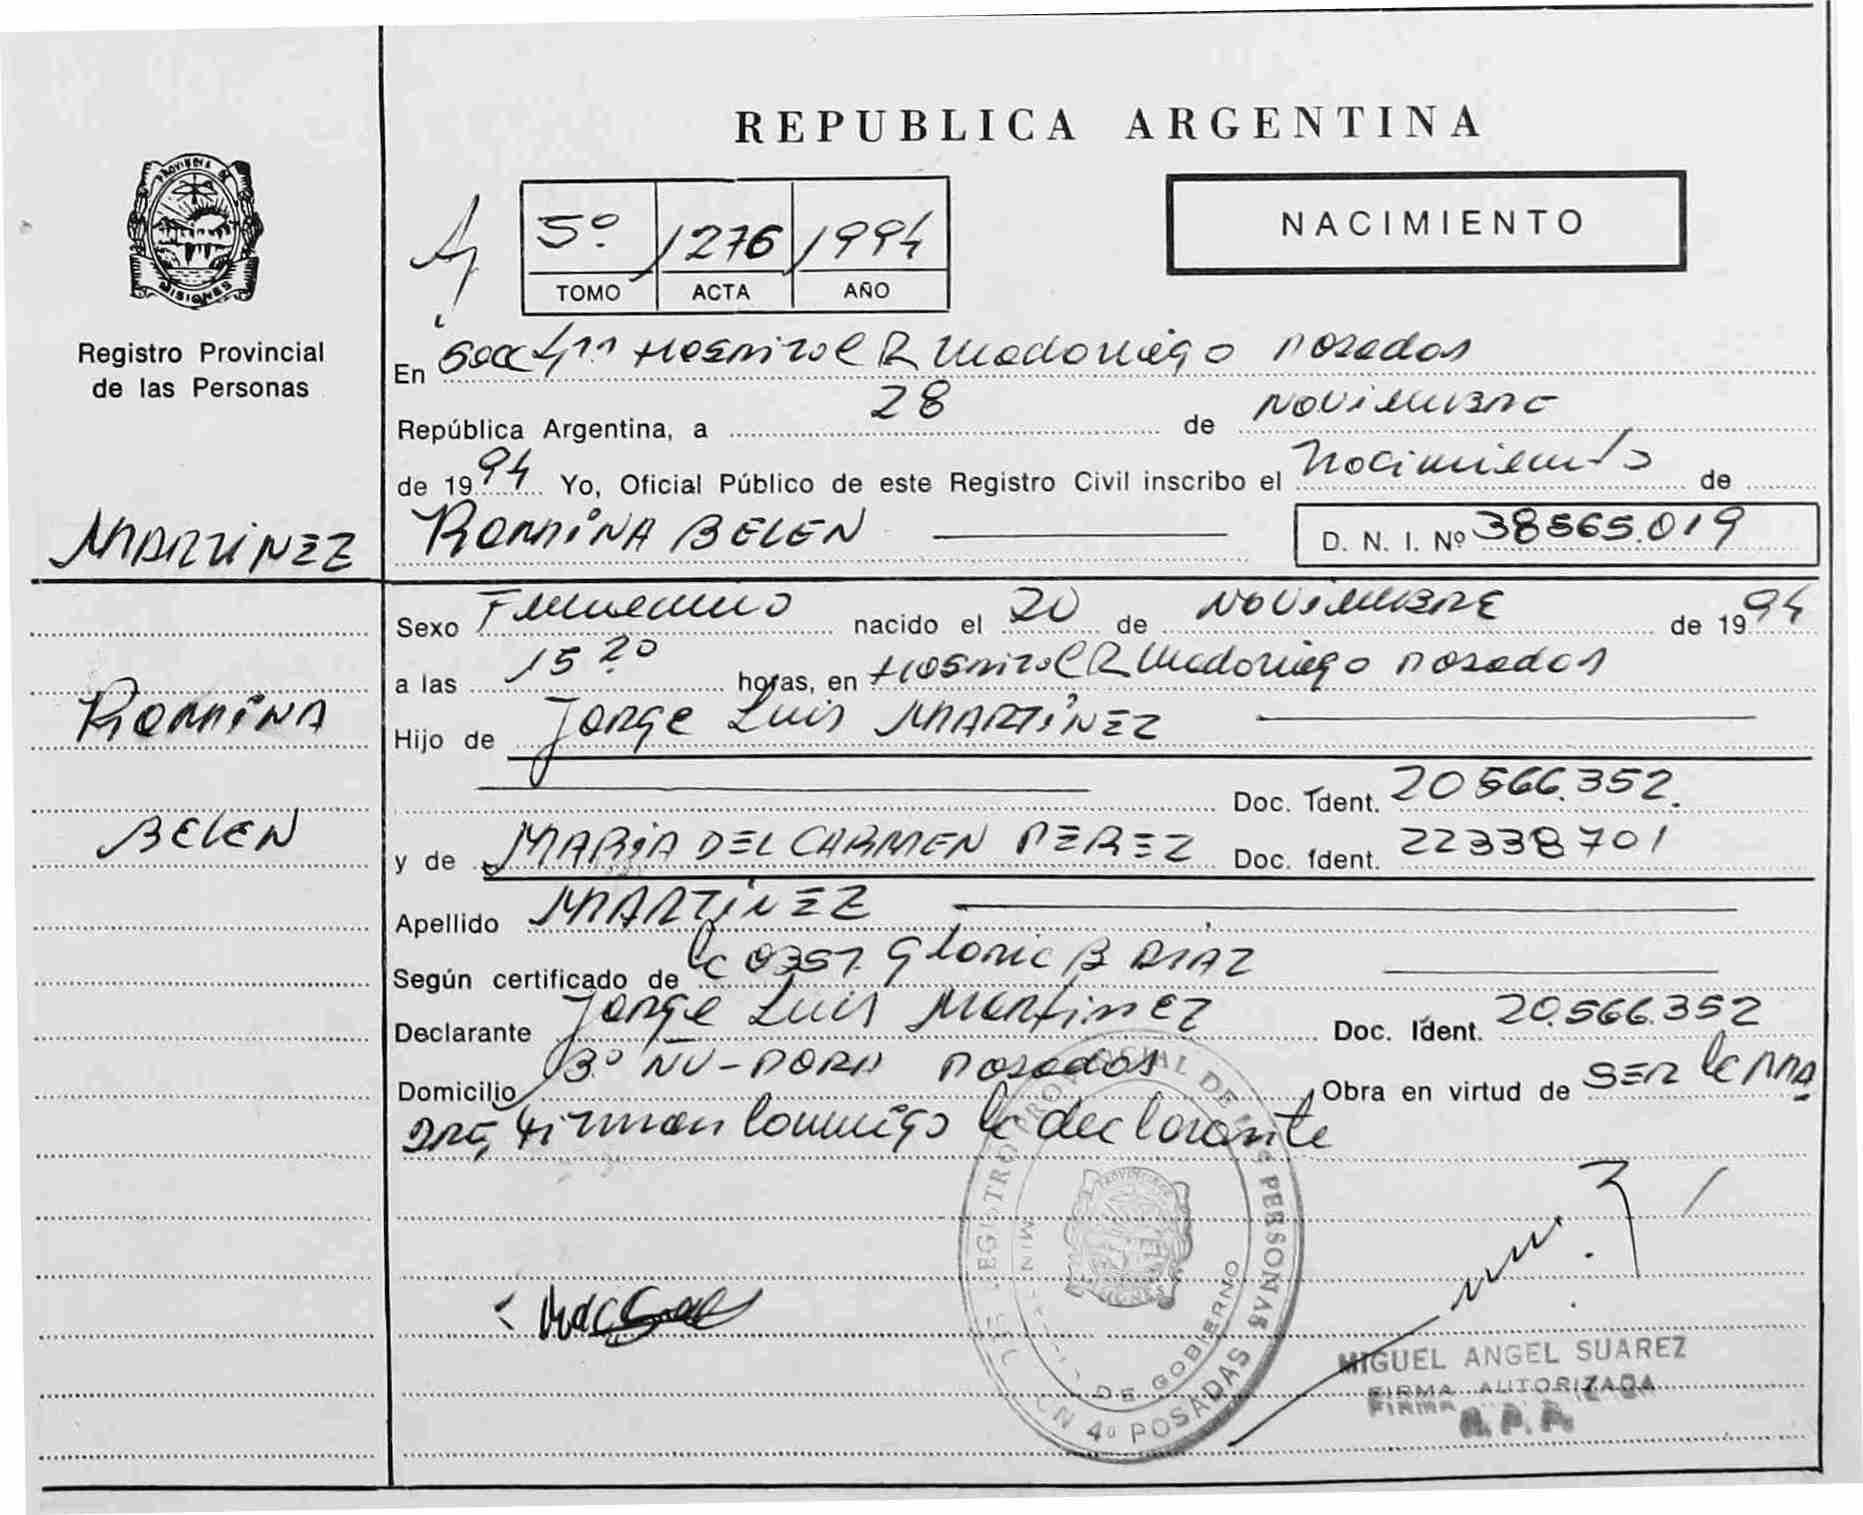 REPUBLICA ARGENTINA
PROVINCIA DE
MISIONES
Registro Provincial
de las Personas
5º 1276 1994
TOMO ACTA AÑO
NACIMIENTO
En Secc 4ta Hospital R Madariaga Posadas
República Argentina, a 28 de Noviembre
de 1994 Yo, Oficial Público de este Registro Civil inscribo el Nacimiento de
MARTINEZ
ROMINA BELEN D. N. I. Nº 38565.019
Sexo Femenino nacido el 20 de NOVIEMBRE de 1994
a las 15 20 horas, en Hospital R Madariaga Posadas
ROMINA
Hijo de Jorge Luis MARTINEZ
Doc. Ident. 20566.352.
BELEN
y de MARIA DEL CARMEN PEREZ Doc. Ident. 22338701
Apellido MARTINEZ
Según certificado de la Obst. Gloria B DIAZ
Declarante Jorge Luis Martinez Doc. Ident. 20.566.352
Domicilio Posadas Obra en virtud de SER
firman conmigo la declarante
REGISTRO PROVINCIAL DE las PERSONAS
DE GOBIERNO
4º POSADAS
MIGUEL ANGEL SUAREZ
FIRMA AUTORIZADA